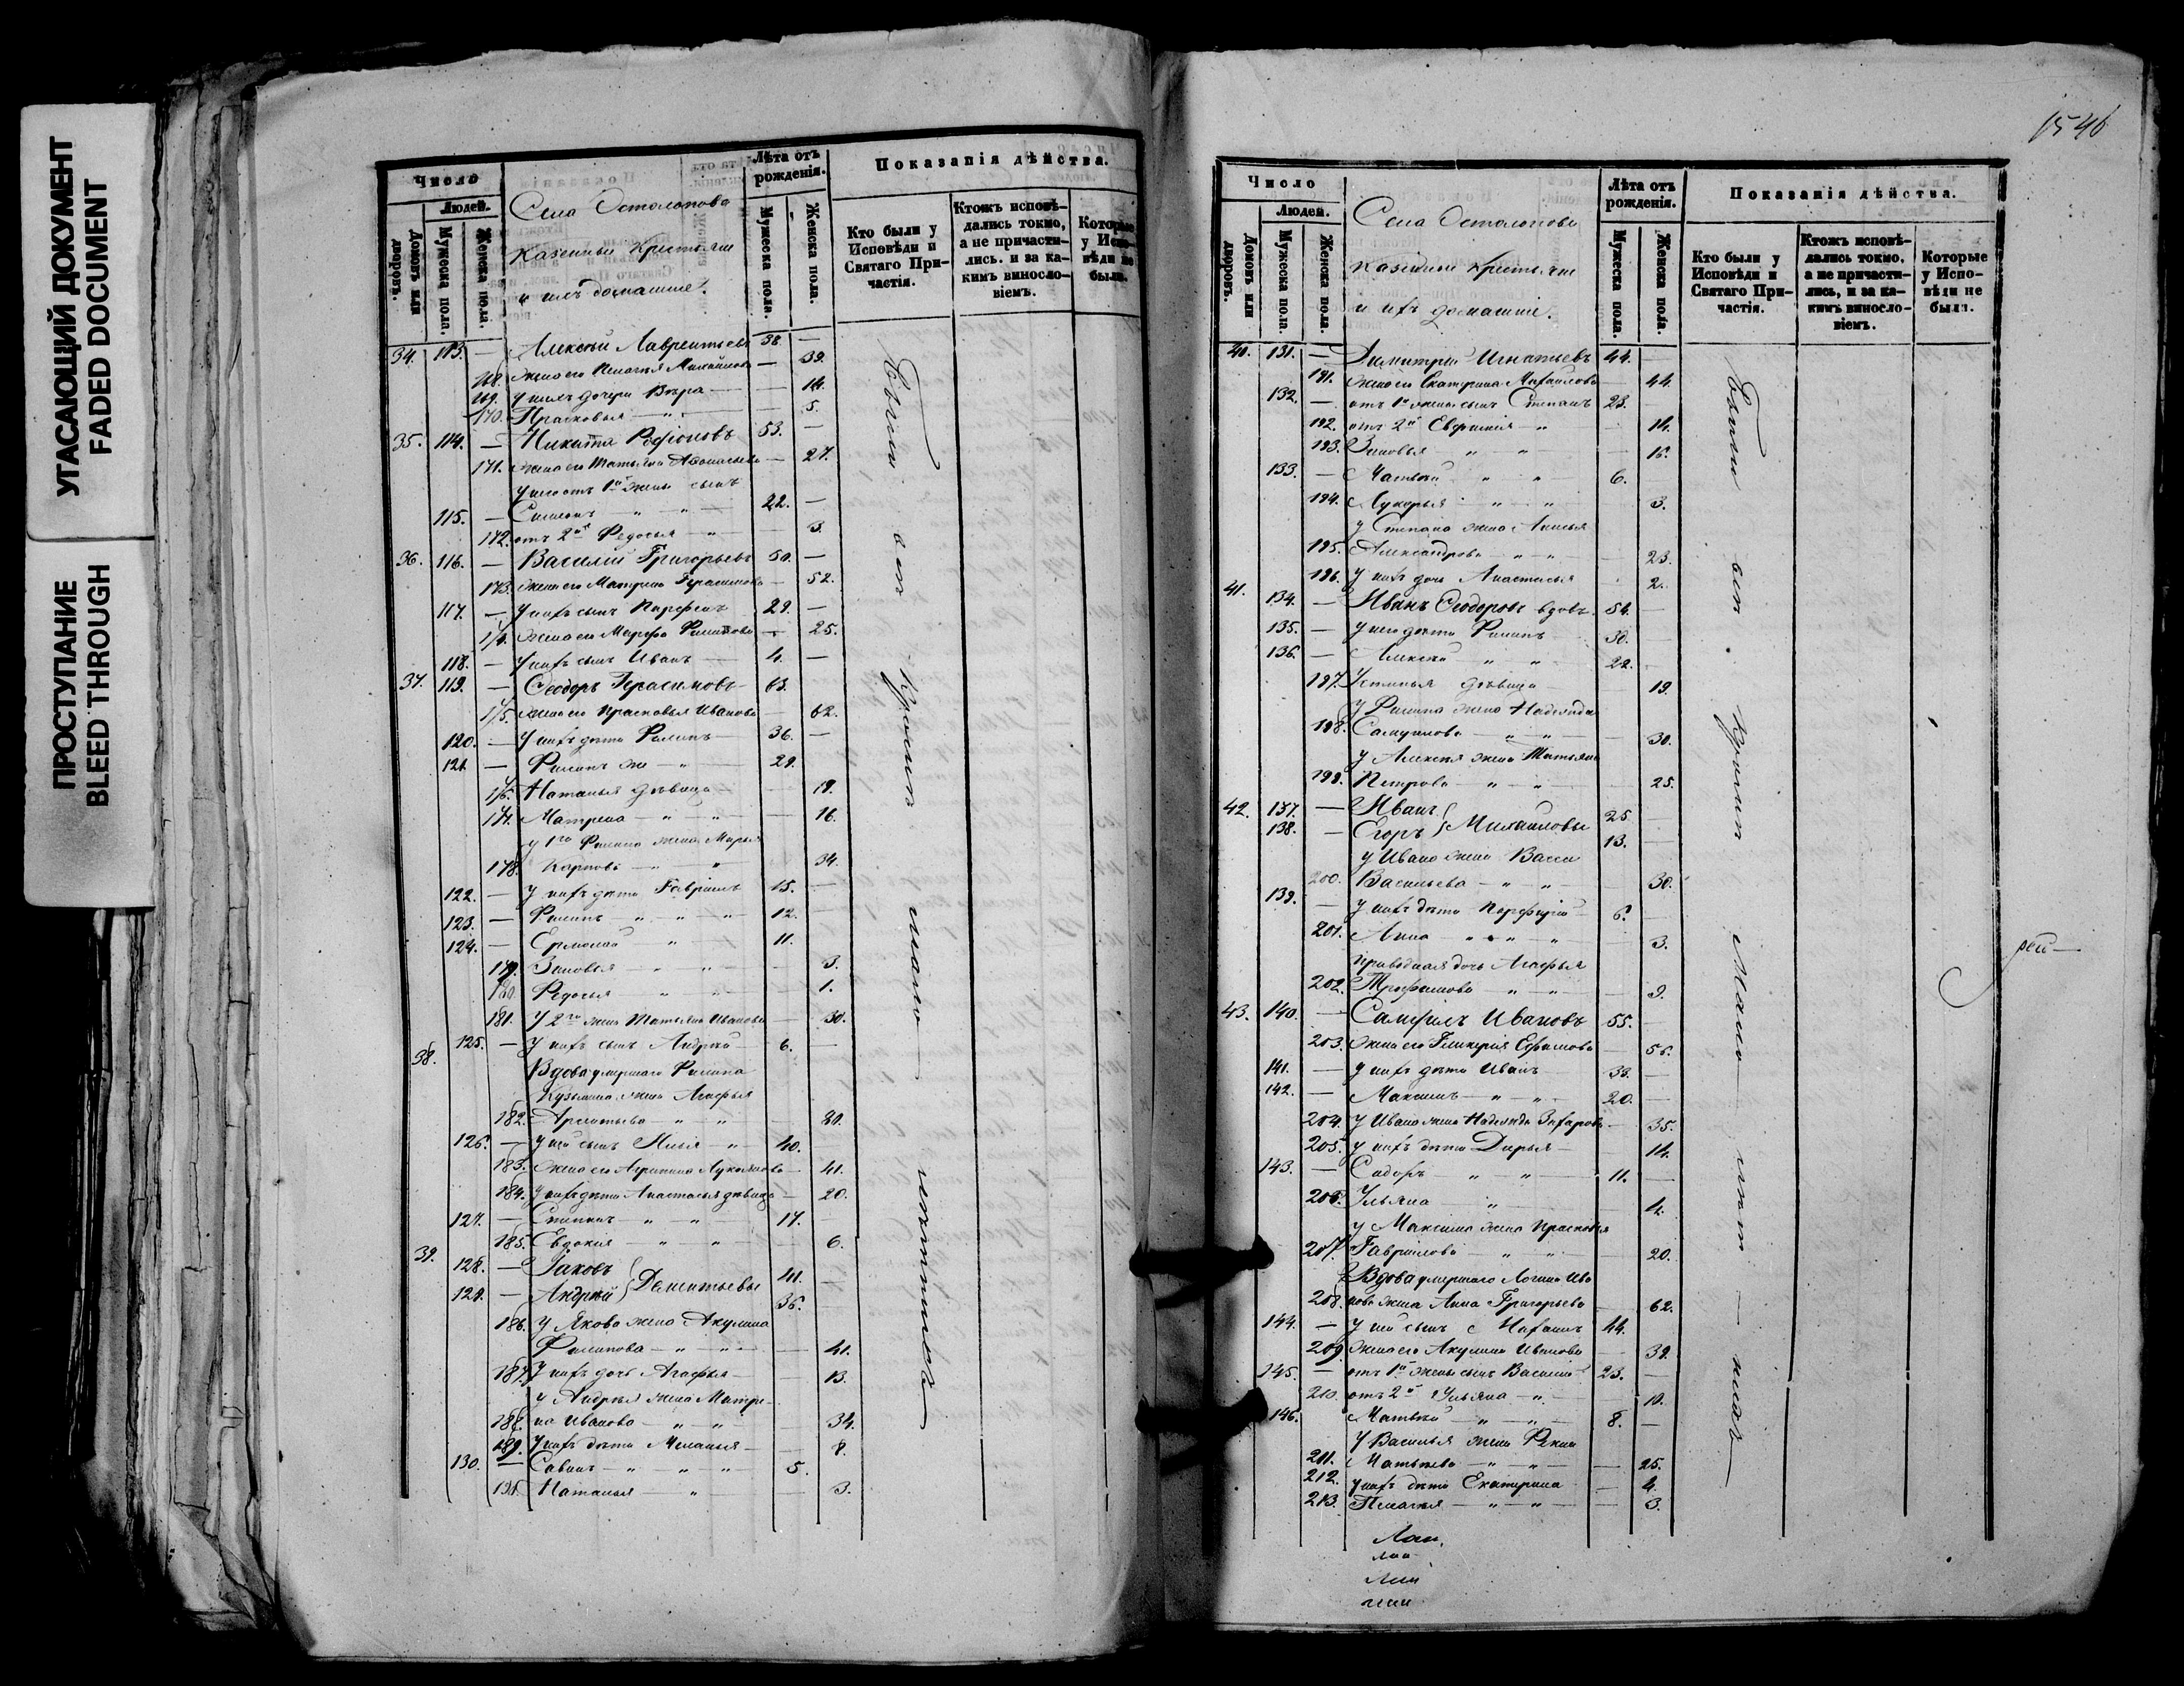 УГАСАЮЩИЙ ДОКУМЕНТ
FADED DOCUMENT
ПРОСТУПАНИЕ
BLEED THROUGH
Число
Людей.
Домовъ или дворовъ.
Мужеска пола.
Женска пола.
Села Остолопова
казенные крестьяне
и ихъ домашніе.
Лѣта отъ рожденія.
Мужеска пола.
Женска пола.
Показанія дѣйства.
Кто были у Исповѣди и Святаго Причастія.
Ктожъ исповѣдались токмо, а не причастились. и за какимъ винословіемъ.
Которые у Исповѣди не были.
34. 113. — Алексѣй Лаврентьевъ 38. —
168. жена его Пелагея Михайлова — 39.
169. у нихъ дочери Вѣра — 14.
170. Прасковья — 5.
35. 114. — Никита Родіоновъ 53. —
171. жена его Татьяна Афонасьева — 27.
у него отъ 1й жены сынъ
115. — Симеонъ 22. —
172. отъ 2й Федосья 3.
36. 116. — Василій Григорьевъ 50. —
173. жена его Матрена Герасимова — 52.
117. — у нихъ сынъ Парфенъ 29. —
174. жена его Марфа Филипова — 25.
118. — у нихъ сынъ Иванъ 4. —
37. 119. — Ѳеодоръ Герасимовъ 63.
175. жена его Прасковья Иванова 62.
120. — у нихъ дѣти Филипъ 36. —
121. — Филипъ же 29.
176. Наталья дѣвица 19.
177. Матрена 16.
у 1го Филипа жена Марья
178. Карпова 34.
122. — у нихъ дѣти Гавріилъ 15. —
123. — Филипъ 12.
124. — Ермолай 11.
179. Зиновья 3.
180. Федосья 1.
181. У 2го жена Татьяна Иванова 30.
125. — у нихъ сынъ Андрей 6. —
38. Вдова умершаго Филипа
Кузьмина жена Агафья
182. Арсентьева 80.
126. — у ней сынъ Илья 40.
183. жена его Агрипина Лукоянова 41.
184. у нихъ дѣти Анастасья дѣвица — 20.
127. — Степанъ 17. —
185. Евдокія 6.
39. 128. — Іаковъ } Дементьевы 41. —
129. — Андрей 36.
186. у Якова жена Акулина
Филипова 41.
187. У нихъ дочь Агафья — 13.
у Андрея жена Матре-
188. на Иванова 34.
189. у нихъ дѣти Меланья — 8.
130. — Саванъ 5.
190. Наталья 3.
Были вси кромѣ мало лѣтныхъ
1546
Число
Людей.
Домовъ или дворовъ.
Мужеска пола.
Женска пола.
Села Остолопова
казенные крестьяне
и ихъ домашніе.
Лѣта отъ рожденія.
Мужеска пола.
Женска пола.
Показанія дѣйства.
Кто были у Исповѣди и Святаго Причастія.
Ктожъ исповѣдались токмо, а не причастились, и за какимъ винословіемъ.
Которые у Исповѣди не были.
40. 131. — Димитрій Игнатьевъ 44.
191. жена его Екатерина Михайлова 44.
132. — отъ 1й жены сынъ Степанъ 23.
192. отъ 2й Евфимія 14.
193. Зиновья 16.
133. — Матвѣй 6.
194. Лукерья 3.
у Степана жена Анисья
195. Александрова 23.
196. у нихъ дочь Анастасья 2.
41. 134. — Иванъ Ѳеодоровъ вдовъ 54. —
135. — у него дѣти Филипъ 30.
136. — Алексѣй 22. —
197. Устинья дѣвица 19.
у Филипа жена Надежда
198. Самуилова 30.
у Алексѣя жена Татьяна
199. Петрова 25.
42. 137. — Иванъ } Михайловы 25 —
138. — Егоръ 13. —
у Ивана жена Васса
200. Васильева 30.
139. — у нихъ дѣти Порфирій 6. —
201. Анна 3.
приводная дочь Агафья
202. Трофимова 9.
43. 140. — Самуилъ Ивановъ 55. —
203. жена его Гликерія Ефимова 56.
141. — у нихъ дѣти Иванъ 33. —
142. — Максимъ 20. —
204. у Ивана жена Надежда Захарова 35.
205. у нихъ дѣти Дарья 14.
143. — Сидоръ 11. —
206. Ульяна 4.
у Максима жена Прасковья
207. Гаврилова 20.
Вдова умершаго Логина Ива
208. нова жена Анна Григорьева 62.
144. — у ней сынъ 44.
209. жена его Акулина Иванова 39.
145. — отъ 1й жены сынъ Василій 23. —
210. отъ 2й Ульяна 10.
146. Матвѣй 8. —
у Василья жена Фекла
211. Матвѣева 25.
212. у нихъ дѣти Екатерина 4.
213. Пелагея 3.
Были вси кромѣ мало лѣтныхъ